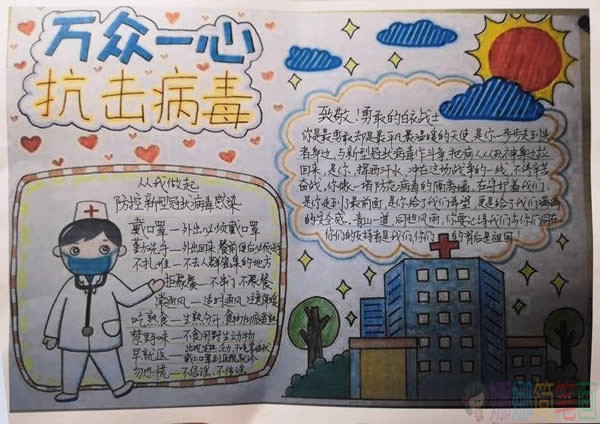 万众一心
抗击病毒
致敬！勇敢的白衣战士
你是最勇敢却是最平凡最温暖的天使，是你一步步走到患
者身边，与新型冠状病毒作斗争，把病人从死神身边拉
回来，是你，挥洒汗水，冲在这场战争的一线，不停奋
奋战，你像一堵防范病毒的隔离墙，在守护着我们，
是你走到了最前面，是你给了我们希望，更是给了我们满满
的安全感，青山一道，同担风雨，你要记得我们与你们同在
你们的支持者是我们，你们的背后是祖国！
从我做起
防控新型冠状病毒感染
戴口罩—外出必须戴口罩
勤洗手—外出回来 餐前便后必须洗手
不扎堆—不去人群密集的地方
拒聚餐—不串门 不聚餐
常通风—适时通风 注意保暖
吃熟食—生熟分开
禁野味—不食用野生动物
早就医
勿恐慌—不信谣、不传谣
娜娜简笔画